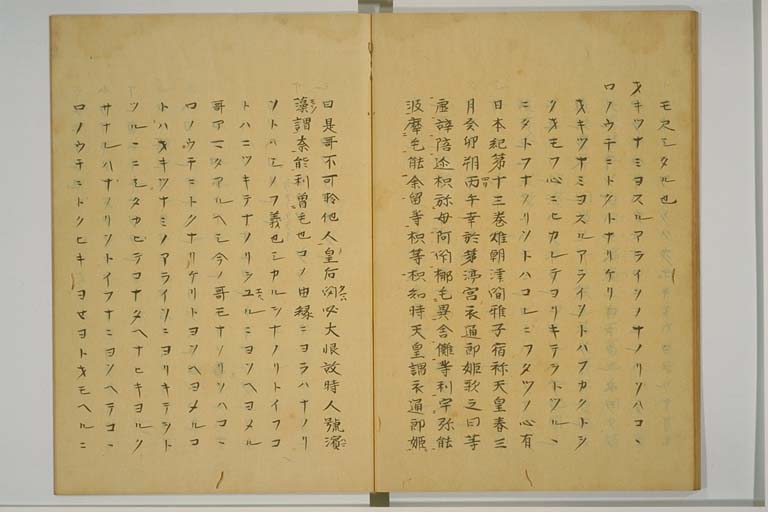 モスミタル也
オキツナミヨスルアライソノナノリソハコヽ
ロノウチニトクトナリケリ
オキツナミヨスルアライソトハフカクトシ
クオモフ心ニヒカレテヨリキテヲトツルヽ
ニタトフナノリソトハコレニフタツノ心有
日本紀第十三巻雄朝津間稚子宿祢天皇春三
月癸卯朔丙午幸於茅渟宮衣通郎姫歌之曰等
虚辞陪迩枳弥母阿閇椰毛異舎儺等利宇弥能
波摩毛能余留等枳等枳知時天皇謂衣通郎姫
曰是哥不可聆他人皇后聞必大恨故時人號濱
藻謂奈能利曽毛也コノ由縁ニヨラハナノリ
ソトハシノフ義也シカルヲナノリトイフコ
トハニツキテナノリシユルニヨソヘヨメル
哥アマタアルヘシ今ノ哥モナノリソハコヽ
ロノウチニトクナリケリトヨソヘヨメルコ
トハオキツナミノアライソニヨリキテヲト
ツルニミタカヒテコナタヘナヒキヨルヲ
サナレハナノリソトイフナニヨソヘテコヽ
ロノウチニトクヒキヨセヨトオモヘルニ